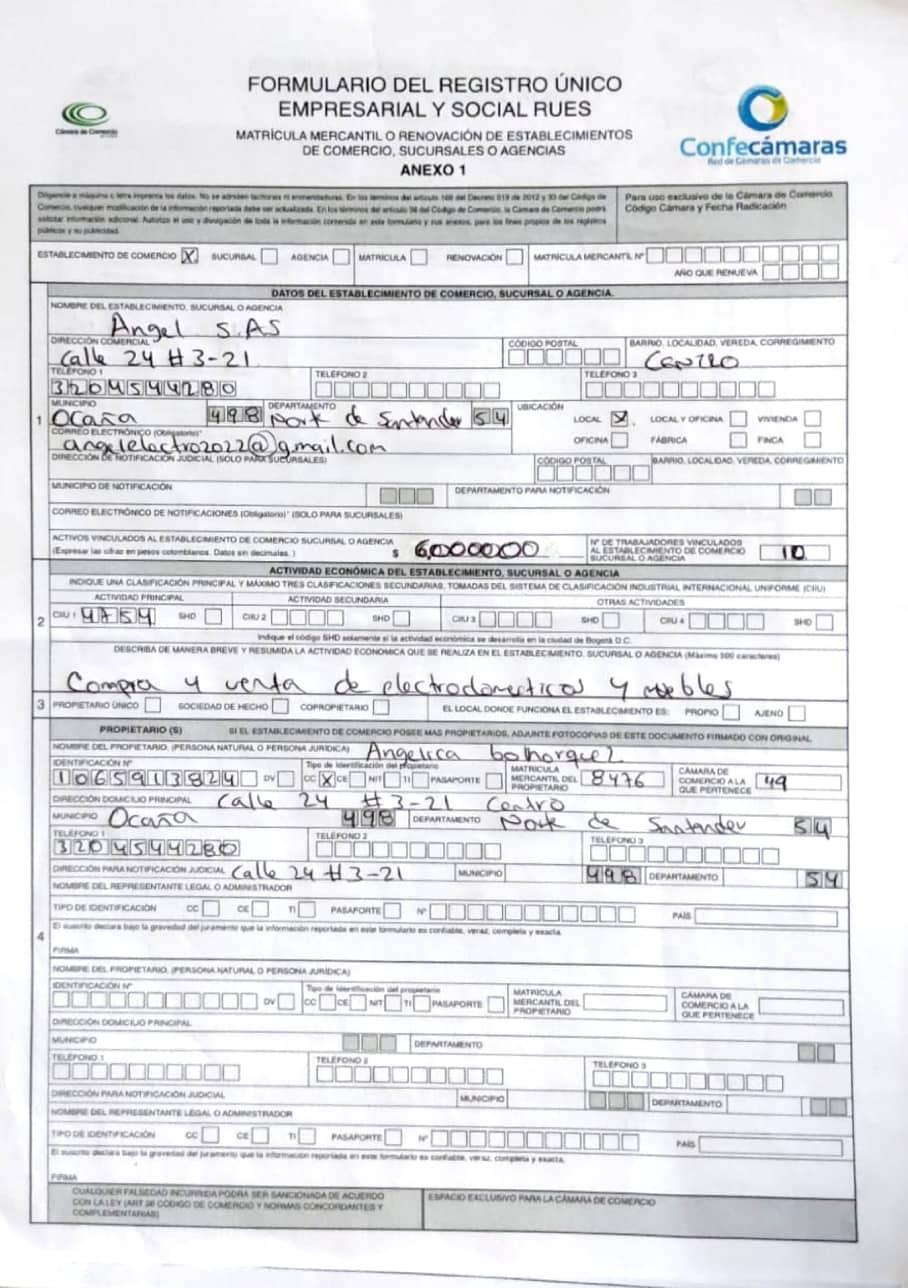 FORMULARIO DEL REGISTRO ÚNICO
EMPRESARIAL Y SOCIAL RUES
MATRÍCULA MERCANTIL O RENOVACIÓN DE ESTABLECIMIENTOS
DE COMERCIO, SUCURSALES O AGENCIAS
ANEXO 1
Cámara de Comercio
Confecámaras
Red de Cámaras de Comercio
Diligencie a máquina o letra imprenta los datos. No se admiten tachones ni enmendaduras. En los términos del artículo 166 del Decreto 019 de 2012 y 33 del Código de
Comercio, cualquier modificación de la información reportada debe ser actualizada. En los términos del artículo 36 del Código de Comercio, la Cámara de Comercio podrá
solicitar información adicional. Autorizo el uso y divulgación de toda la información contenida en este formulario y sus anexos, para los fines propios de los registros
públicos y su publicidad.
Para uso exclusivo de la Cámara de Comercio
Código Cámara y Fecha Radicación
ESTABLECIMIENTO DE COMERCIO X SUCURSAL AGENCIA MATRÍCULA RENOVACIÓN MATRÍCULA MERCANTIL Nº
AÑO QUE RENUEVA
DATOS DEL ESTABLECIMIENTO DE COMERCIO, SUCURSAL O AGENCIA.
NOMBRE DEL ESTABLECIMIENTO, SUCURSAL O AGENCIA
Angel S.AS
DIRECCIÓN COMERCIAL CÓDIGO POSTAL BARRIO, LOCALIDAD, VEREDA, CORREGIMIENTO
Calle 24 # 3-21 Centro
TELÉFONO 1 TELÉFONO 2 TELÉFONO 3
3204544280
1
MUNICIPIO DEPARTAMENTO UBICACIÓN
Ocaña 498 Norte de Santander 54 LOCAL X LOCAL Y OFICINA VIVIENDA
CORREO ELECTRÓNICO (Obligatorio)* OFICINA FÁBRICA FINCA
angelelectro2022@gmail.com
DIRECCIÓN DE NOTIFICACIÓN JUDICIAL (SOLO PARA SUCURSALES) CÓDIGO POSTAL BARRIO, LOCALIDAD, VEREDA, CORREGIMIENTO
MUNICIPIO DE NOTIFICACIÓN DEPARTAMENTO PARA NOTIFICACIÓN
CORREO ELECTRÓNICO DE NOTIFICACIONES (Obligatorio)* (SOLO PARA SUCURSALES)
ACTIVOS VINCULADOS AL ESTABLECIMIENTO DE COMERCIO SUCURSAL O AGENCIA
(Expresar las cifras en pesos colombianos. Datos sin decimales. ) $ 6,000000
Nº DE TRABAJADORES VINCULADOS
AL ESTABLECIMIENTO DE COMERCIO
SUCURSAL O AGENCIA
10
ACTIVIDAD ECONÓMICA DEL ESTABLECIMIENTO, SUCURSAL O AGENCIA
INDIQUE UNA CLASIFICACIÓN PRINCIPAL Y MÁXIMO TRES CLASIFICACIONES SECUNDARIAS, TOMADAS DEL SISTEMA DE CLASIFICACIÓN INDUSTRIAL INTERNACIONAL UNIFORME (CIIU)
ACTIVIDAD PRINCIPAL ACTIVIDAD SECUNDARIA OTRAS ACTIVIDADES
2
CIIU 1 4754 SHD CIIU 2 SHD CIIU 3 SHD CIIU 4 SHD
Indique el código SHD solamente si la actividad económica se desarrolla en la ciudad de Bogotá D.C.
DESCRIBA DE MANERA BREVE Y RESUMIDA LA ACTIVIDAD ECONÓMICA QUE SE REALIZA EN EL ESTABLECIMIENTO, SUCURSAL O AGENCIA (Máximo 500 caracteres)
Compra y venta de electrodomesticos y muebles
3 PROPIETARIO ÚNICO SOCIEDAD DE HECHO COPROPIETARIO EL LOCAL DONDE FUNCIONA EL ESTABLECIMIENTO ES: PROPIO AJENO
PROPIETARIO (S) SI EL ESTABLECIMIENTO DE COMERCIO POSEE MAS PROPIETARIOS, ADJUNTE FOTOCOPIAS DE ESTE DOCUMENTO FIRMADO CON ORIGINAL
NOMBRE DEL PROPIETARIO, (PERSONA NATURAL O PERSONA JURÍDICA) Angelica bohorquez
IDENTIFICACIÓN Nº Tipo de Identificación del propietario
1065913824 DV CC X CE NIT TI PASAPORTE
MATRÍCULA
MERCANTIL DEL
PROPIETARIO
8476
CÁMARA DE
COMERCIO A LA
QUE PERTENECE
49
DIRECCIÓN DOMICILIO PRINCIPAL Calle 24 # 3-21 Centro
MUNICIPIO Ocaña 498 DEPARTAMENTO Norte de Santander 54
TELÉFONO 1 TELÉFONO 2 TELÉFONO 3
3204544280
DIRECCIÓN PARA NOTIFICACIÓN JUDICIAL Calle 24 # 3-21 MUNICIPIO 498 DEPARTAMENTO 54
NOMBRE DEL REPRESENTANTE LEGAL O ADMINISTRADOR
TIPO DE IDENTIFICACIÓN CC CE TI PASAPORTE Nº PAÍS
El suscrito declara bajo la gravedad del juramento que la información reportada en este formulario es confiable, veraz, completa y exacta.
4
FIRMA
NOMBRE DEL PROPIETARIO, (PERSONA NATURAL O PERSONA JURÍDICA)
IDENTIFICACIÓN Nº Tipo de Identificación del propietario
DV CC CE NIT TI PASAPORTE
MATRÍCULA
MERCANTIL DEL
PROPIETARIO
CÁMARA DE
COMERCIO A LA
QUE PERTENECE
DIRECCIÓN DOMICILIO PRINCIPAL
MUNICIPIO DEPARTAMENTO
TELÉFONO 1 TELÉFONO 2 TELÉFONO 3
DIRECCIÓN PARA NOTIFICACIÓN JUDICIAL MUNICIPIO DEPARTAMENTO
NOMBRE DEL REPRESENTANTE LEGAL O ADMINISTRADOR
TIPO DE IDENTIFICACIÓN CC CE TI PASAPORTE Nº PAÍS
El suscrito declara bajo la gravedad del juramento que la información reportada en este formulario es confiable, veraz, completa y exacta.
FIRMA
CUALQUIER FALSEDAD INCURRIDA PODRÁ SER SANCIONADA DE ACUERDO
CON LA LEY (ART 38 CÓDIGO DE COMERCIO Y NORMAS CONCORDANTES Y
COMPLEMENTARIAS)
ESPACIO EXCLUSIVO PARA LA CÁMARA DE COMERCIO